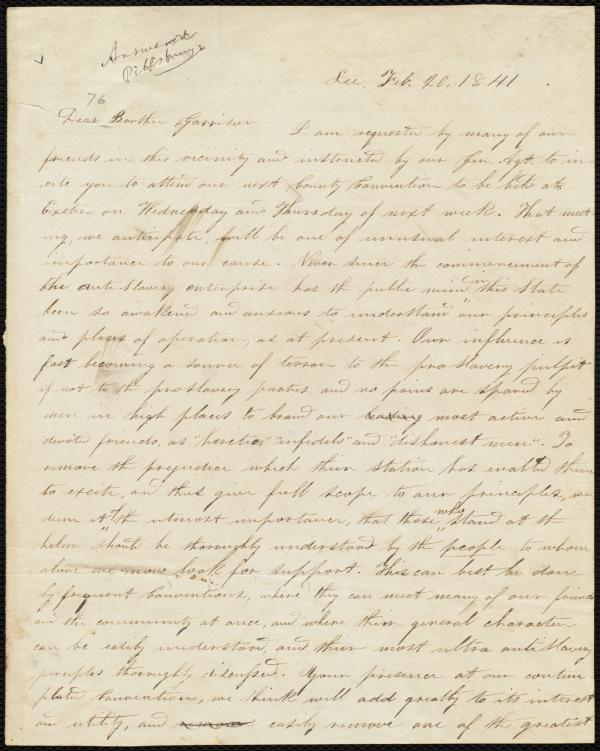 Answered
Pillsbury
76
Lee, Feb. 20. 1841
Dear Brother Garrison
I am requested by many of our
friends in this vicinity and instructed by our Gen. Agt. to in-
vite you to attend our next County Convention to be held at
Exeter on Wednesday and Thursday of next week. That meet-
ing, we anticipate, will be one of unusual interest and
importance to our cause. Never since the commencement of
the anti-slavery enterprise has the public mind in this State
been so awakened and anxious to understand our principles
and plans of operation, as at present. Our influence is
fast becoming a source of terror to the proslavery pulpit
if not to the proslavery parties, and no pains are spared by
men in high places to brand our most active and
devoted friends, as "heretics" "infidels" and "dishonest men". To
remove the prejudice which their station has enabled them
to excite, and thus give full scope to our principles, we
deem it of the utmost importance, that those who stand at the
helm should be thoroughly understood by the people to whom
alone we now look for support. This can best be done
by frequent Conventions, where they can meet many of our friends
and the community at once, and where their general character
can be easily understood, and their most ultra anti slavery
principles thoroughly discussed. Your presence at our contem
plated Convention, we think will add greatly to its interest
and utility, and easily remove one of the greatest